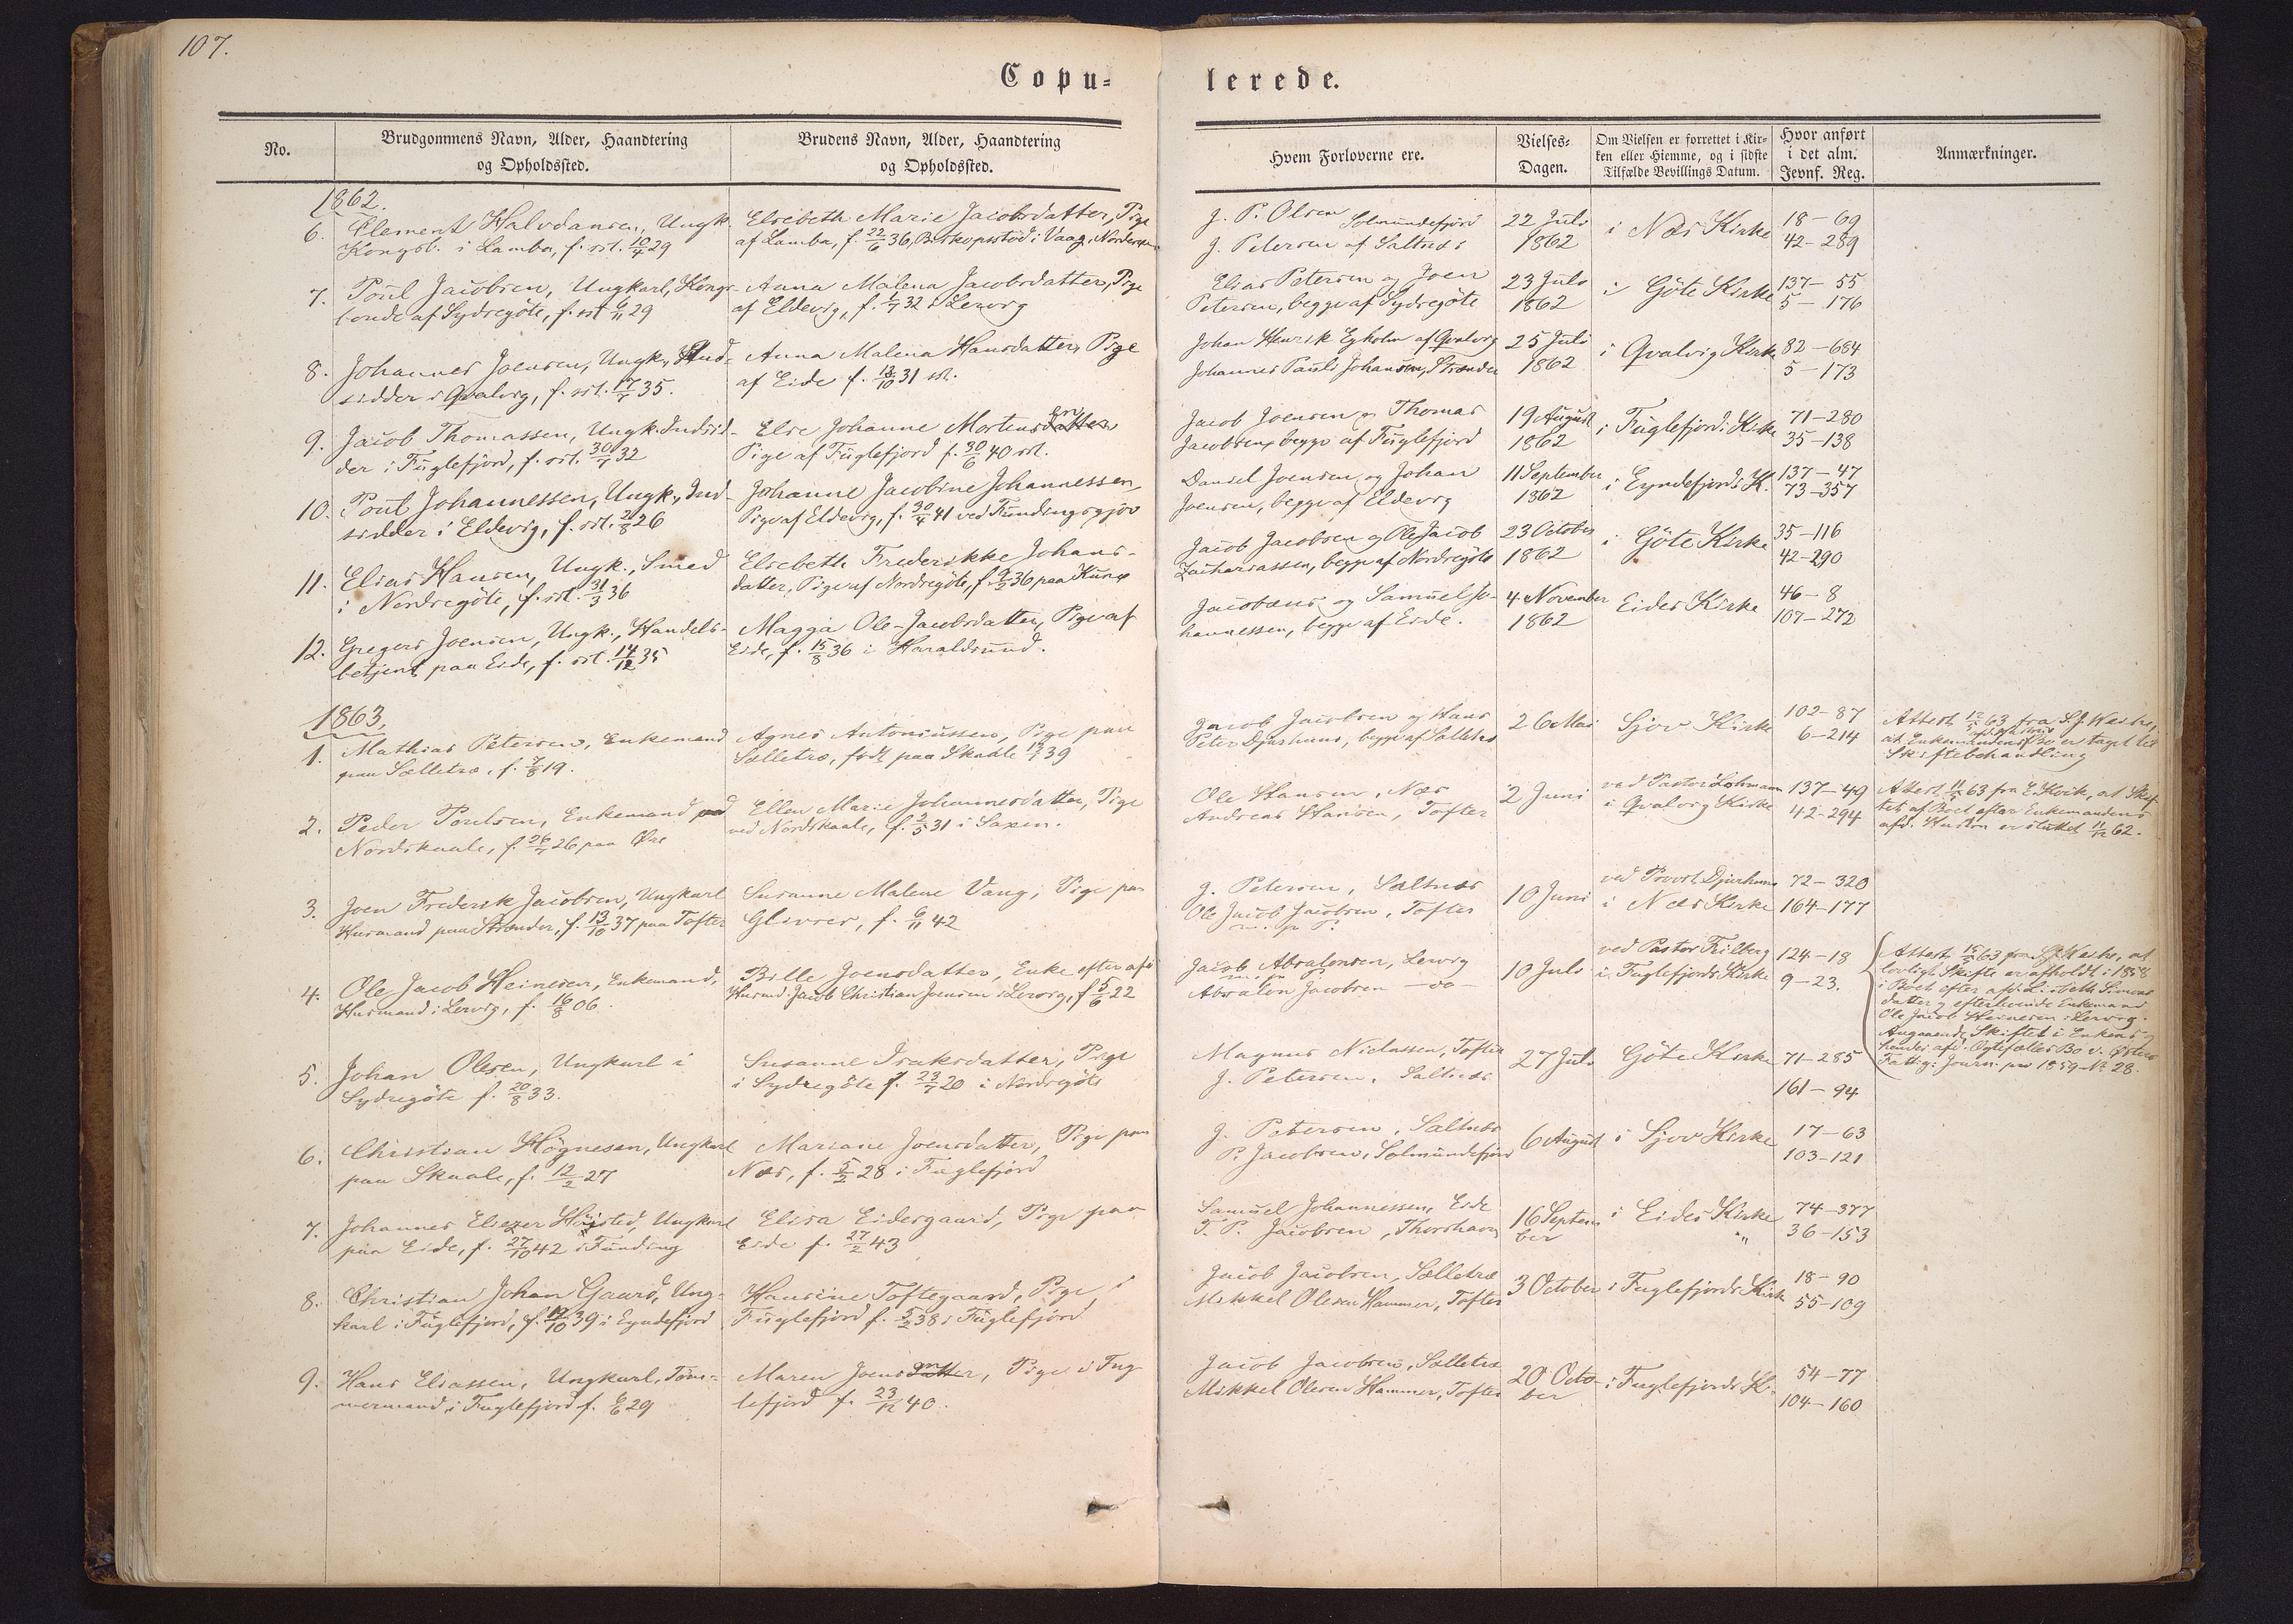 107.
Copu=
lerede.
No.
Brudgommens Navn, Alder, Haandtering
og Opholdssted.
Brudens Navn, Alder, Haandtering
og Opholdssted.
Hvem Forloverne ere.
Vielses=
Dagen.
Om Vielsen er forrettet i Kir=
ken eller Hiemme, og i sidste
Tilfælde Bevillings Datum.
Hvor anført
i det alm.
Jevnf. Reg.
Anmærkninger.
1862.
6. Clement Halvdansen, Ungk.
Kongsb. i Lamba, f. sst. 10/7 29
Elsebeth Marie Jacobsdatter, Pige
af Lamba, f. 22/6 36, Biskopsstöd i Vaag, Norderøerne
J. P. Olsen Solmundefjord
J. Petersen af Saltnæs
22 Juli
1862
i Næs Kirke
18-69
42-289
7. Poul Jacobsen, Ungkarl, Kongs-
bonde af Sydregöte, f. sst 6/11 29
Anna Malena Jacobsdatter, Pige
af Eldevig, f. 1/7 32 i Lervig
Elias Petersen og Joen
Petersen, begge af Sydregöte
23 Juli
1862
i Göte Kirke
137-55
5-176
8. Johannes Joensen, Ungk., Ind-
sidder i Qvalvig, f. sst. 17/7 35.
Anna Malena Hansdatter, Pige
af Eide f. 13/10 31 sst.
Johan Henrik Egholm af Qvalvig
Johannes Pauli Johansen, Strænder
25 Juli
1862
i Qvalvig Kirke
82-684
5-173
9. Jacob Thomassen, Ungk. Indsid-
der i Fuglefjord, f. sst. 30/7 32
Else Johanne Mortensdatter
Pige af Fuglefjord f. 30/6 40 sst.
Jacob Joensen og Thomas
Jacobsen, begge af Fuglefjord
19 August
1862
i Fuglefjords Kirke
71-280
35-138
10. Poul Johannessen, Ungk., Ind-
sidder i Eldevig, f. sst. 21/8 26
Johanne Jacobine Johannessen,
Pige af Eldevig, f. 30/4 41 ved Fundingsgjov
Daniel Joensen og Johan
Joensen, begge af Eldevig
11 September
1862
i Eyndefjords K.
137-47
73-357
11. Elias Hansen, Ungk., Smed
i Nordregöte, f. sst. 31/3 36
Elsebeth Frederikke Johans-
datter, Pige af Nordregöte, f. 9/2 36 paa Kunø
Jacob Jacobsen og Ole Jacob
Zachariassen, begge af Nordregöte
23 October
1862
i Göte Kirke
35-116
42-290
12. Gregers Joensen, Ungk., Handels-
betjent paa Eide, f. sst. 14/12 35
Magga Ole-Jacobsdatter, Pige af
Eide, f. 15/8 36 i Haraldsund.
Jacobæus og Samuel Jo-
hannessen, begge af Eide.
4 November
1862
Eides Kirke
46-8
107-272
1863.
1. Mathias Petersen, Enkemand
paa Sælletræ, f. 7/8 19.
Agnes Antoniussen, Pige paa
Sælletræ, født paa Skaale 19/7 39
Jacob Jacobsen og Hans
Peter Djurhuus, begge af Selletræ
26 Mai
Sjov Kirke
102-87
6-214
Attest 12/5 63 fra
at Enkemandens Bo er taget til
Skiftebehandling
2. Peder Poulsen, Enkemand ved
Nordskaale, f. 26/7 26 paa Øre
Ellen Marie Johannesdatter, Pige
ved Nordskaale, f. 2/5 31 i Saxen.
Ole Hansen, Næs
Andreas Hansen, Tofter
2 Juni
ved Pastor Lohmann
i Qvalvig Kirke
137-49
42-294
Attest 11/5 63 fra E. Kvik, at Skif-
tet af Boet efter Enkemandens
afd. Hustru er sluttet 11/12 62.
3. Joen Frederik Jacobsen, Ungkarl
Husmand paa Strænder, f. 13/10 37 paa Tofter
Susanne Malene Vang, Pige paa
Glivrer, f. 6/11 42
J. Petersen, Saltnæs
Ole Jacob Jacobsen, Tofter
m. p. P.
10 Juni
ved Provst Djurhuus
i Næs Kirke
72-320
164-177
4. Ole Jacob Heinesen, Enkemand,
Husmand i Lervig, f. 16/8 06.
Bille Joensdatter, Enke efter afd
Husmd. Jacob Christian Joensen i Lervig, f 5/6 22
Jacob Absalonsen, Lervig
m. p. P.
Absalon Jacobsen -do-
10 Juli
ved Pastor Frilberg
i Fuglefjords Kirke
124-18
9-23.
Attest 15/5 63 fra at
lovligt Skifte er afholdt i 1858
i Boet efter afd. Lisbeth Simons
datter og efterlevende Enkemand
Ole Jacob Heinesen i Lervig.
Angaaende Skiftet i Enkens
hendes afd. Ægtefælles Bo v. Østerø
Fattigv. Journ. pro 1859 No 28.
5. Johan Olesen, Ungkarl i
Sydregöte f. 20/8 33.
Susanne Isaksdatter, Pige
i Sydregöte f. 23/7 20 i Nordregöte
Magnus Niclassen, Tofter
J. Petersen, Saltnæs
27 Juli
Göte Kirke
71-285
161-94
6. Christian Högnesen, Ungkarl
paa Skaale, f. 12/2 27
Mariane Joensdatter, Pige paa
Næs, f. 5/2 28 i Fuglefjord
J. Petersen, Saltnæs
P. Jacobsen, Solmundefjord
6 August
i Sjov Kirke
17-63
103-121
7. Johannes Eliezer Höjsted, Ungkarl
paa Eide, f. 27/10 42 i Funding
Elisa Eidesgaard, Pige paa
Eide f. 27/2 43
Samuel Johannessen, Eide
T. P. Jacobsen, Thorshavn
16 Septem
ber
i Eides Kirke
"
74-377
36-153
8. Christian Johan Gaard, Ung-
karl i Fuglefjord, f. 19/10 39 i Eyndefjord
Hansine Toftegaard, Pige i
Fuglefjord f. 5/2 38 i Fuglefjord
Jacob Jacobsen, Sælletræ
Mikkel Olesen Hammer, Tofter
3 October
i Fuglefjords Kirke
18-90
55-109
9. Hans Eliassen, Ungkarl, Töm-
mermand, i Fuglefjord f. 6/6 29
Maren Joensdatter, Pige i Fug-
lefjord f. 23/12 40.
Jacob Jacobsen, Sælletræ
Mikkel Olesen Hammer, Tofter
20 Octo-
ber
i Fuglefjords K.
54-77
104-160